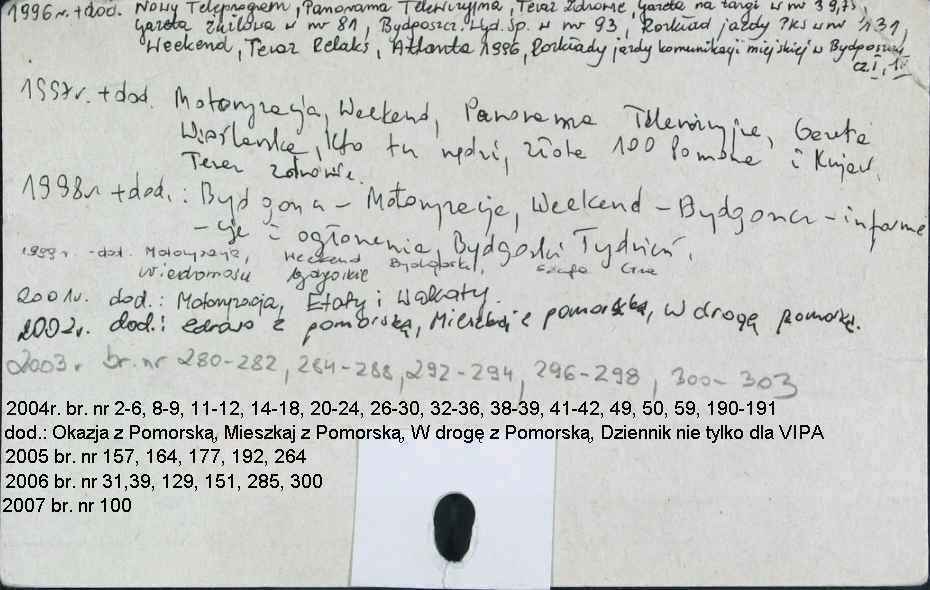 1996r. + dod. Nowy Teleprogram, Panorama Telewizyjna, Teraz Zdrowie, Gazeta na targi w nr 39,73,
Gazeta Żużlowa w nr 81, Bydgoszcz. Wyd. sp. w nr 93, Rozkład jazdy PKS w nr 131,
Weekend, Teraz Relaks, Atlanta 1996, Rozkłady jazdy komunikacji miejskiej w Bydgoszczy
cz. I,
1997r. + dod. Motoryzacja, Weekend, Panorama Telewizyjna, Gazeta
Wiślanka, Kto tu rządzi, złote 100 Pomorza i Kujaw,
Teraz zdrowie.
1998r + dod.: Bydgona - Motoryzacje, Weekend - Bydgona - informa
- cje i ogłoszenia, Bydgoski Tydzień,
1999r. - dod. Motoryzacja, Weekend Bydgoski,
Wiadomości Bydgoskie
2001r. dod.: Motoryzacja, Etaty i Wakaty.
2002r. dod.: Zdrowo z pomorską, Mieszkaj z pomorską, W drogę z pomorską.
2003r br. nr 280-282, 284-288, 292-294, 296-298, 300-303
2004r. br. nr 2-6, 8-9, 11-12, 14-18, 20-24, 26-30, 32-36, 38-39, 41-42, 49, 50, 59, 190-191
dod.: Okazja z Pomorską, Mieszkaj z Pomorską, W drogę z Pomorską, Dziennik nie tylko dla VIPA
2005 br. nr 157, 164, 177, 192, 264
2006 br. nr 31,39, 129, 151, 285, 300
2007 br. nr 100